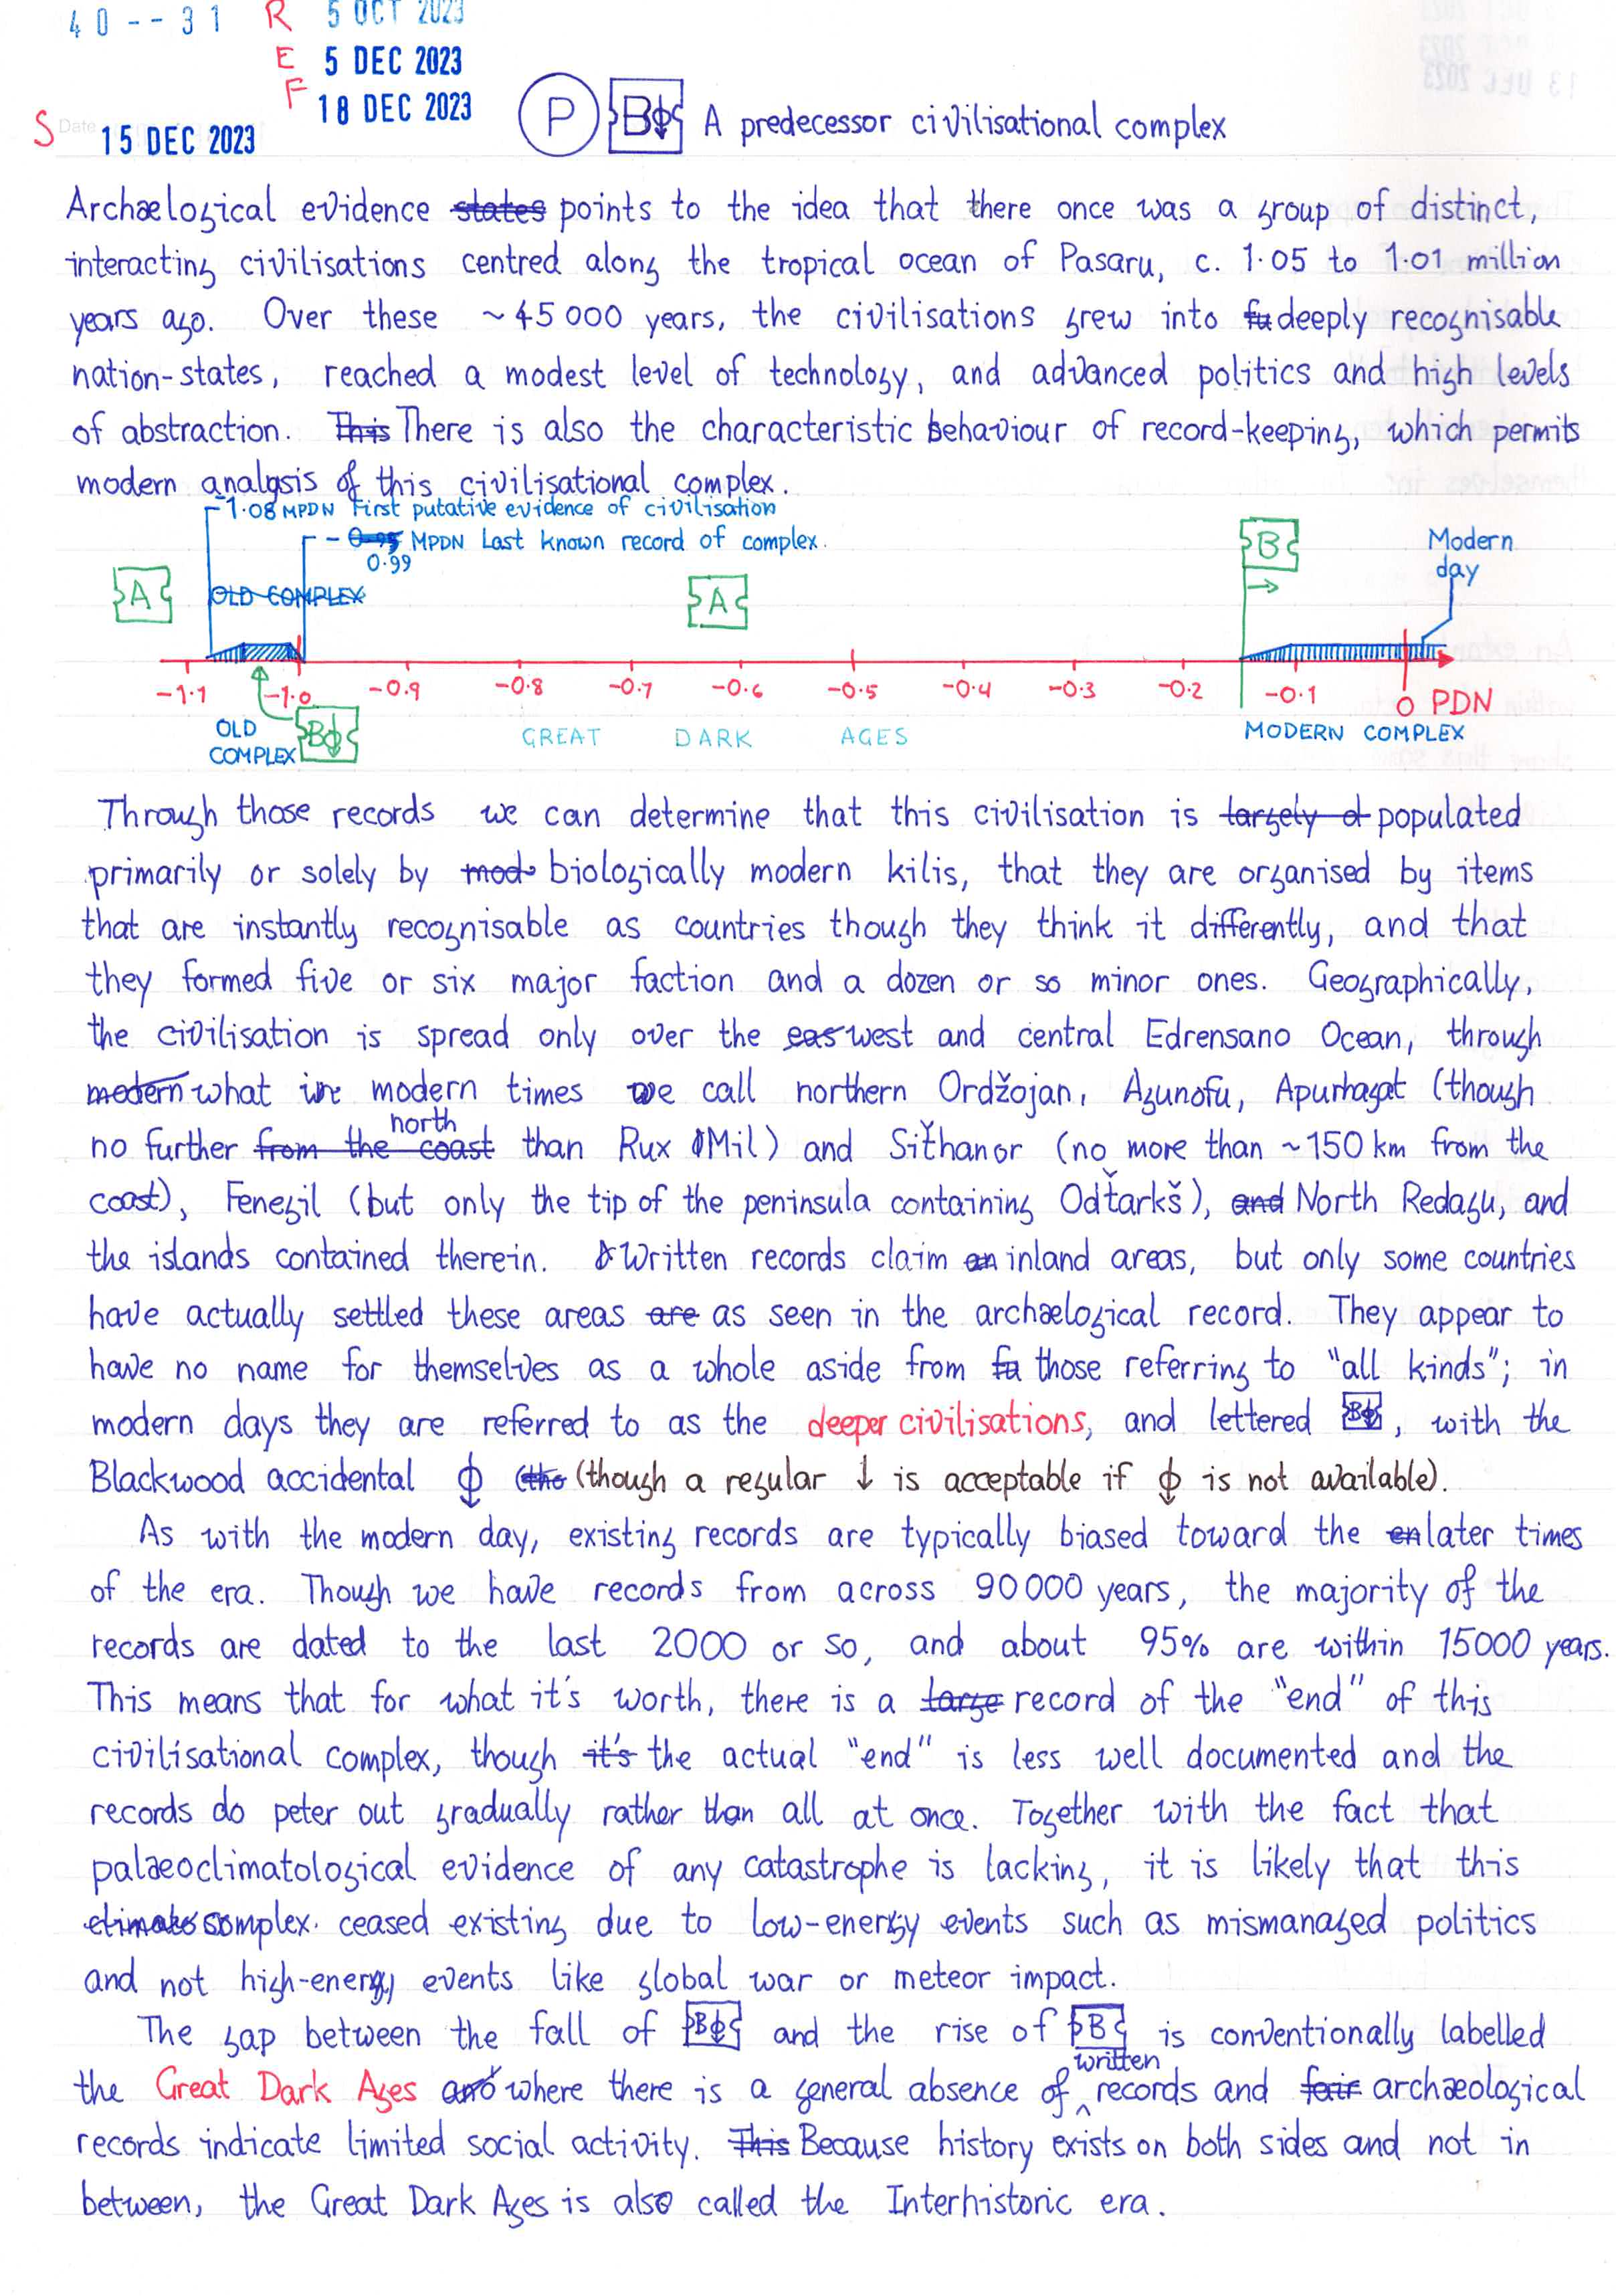 40--31 R 5 OCT 2023
E 5 DEC 2023
F 18 DEC 2023
S Date 15 DEC 2023
P B A predecessor civilisational complex
Archælogical evidence states points to the idea that there once was a group of distinct,
interacting civilisations centred along the tropical ocean of Pasaru, c. 1.05 to 1.01 million
years ago. Over these ~45 000 years, the civilisations grew into fu deeply recognisable
nation-states, reached a modest level of technology, and advanced politics and high levels
of abstraction. This There is also the characteristic behaviour of record-keeping, which permits
modern analysis of this civilisational complex.
-1.08 MPDN First putative evidence of civilisation
- 0.95 MPDN Last known record of complex.
0.99
Modern
day
A
OLD COMPLEX
A
B
→
-1.1 -1.0 -0.9 -0.8 -0.7 -0.6 -0.5 -0.4 -0.3 -0.2 -0.1 0 PDN
OLD
COMPLEX
B
GREAT DARK AGES
MODERN COMPLEX
Through those records we can determine that this civilisation is largely d populated
primarily or solely by mod biologically modern kilis, that they are organised by items
that are instantly recognisable as countries though they think it differently, and that
they formed five or six major faction and a dozen or so minor ones. Geographically,
the civilisation is spread only over the eas west and central Edrensano Ocean, through
modern what in modern times we call northern Ordžojan, Agunofu, (though
north
no further from the coast than Rux Mil) and Siťhanor (no more than ~150 km from the
coast), Fenegil (but only the tip of the peninsula containing Odťarkš), and North Redagu, and
the islands contained therein. Written records claim an inland areas, but only some countries
have actually settled these areas are as seen in the archælogical record. They appear to
have no name for themselves as a whole aside from fu those referring to "all kinds"; in
modern days they are referred to as the deeper civilisations, and lettered B, with the
Blackwood accidental ⌽ (the (though a regular ↓ is acceptable if ⌽ is not available).
As with the modern day, existing records are typically biased toward the en later times
of the era. Though we have records from across 90 000 years, the majority of the
records are dated to the last 2000 or so, and about 95% are within 15000 years.
This means that for what it's worth, there is a large record of the "end" of this
civilisational complex, though it's the actual "end" is less well documented and the
records do peter out gradually rather than all at once. Together with the fact that
palæoclimatological evidence of any catastrophe is lacking, it is likely that this
climate complex ceased existing due to low-energy events such as mismanaged politics
and not high-energy events like global war or meteor impact.
The gap between the fall of B and the rise of B is conventionally labelled
written
the Great Dark Ages and where there is a general absence of ^ records and fair archæological
records indicate limited social activity. This Because history exists on both sides and not in
between, the Great Dark Ages is also called the Interhistoric era.